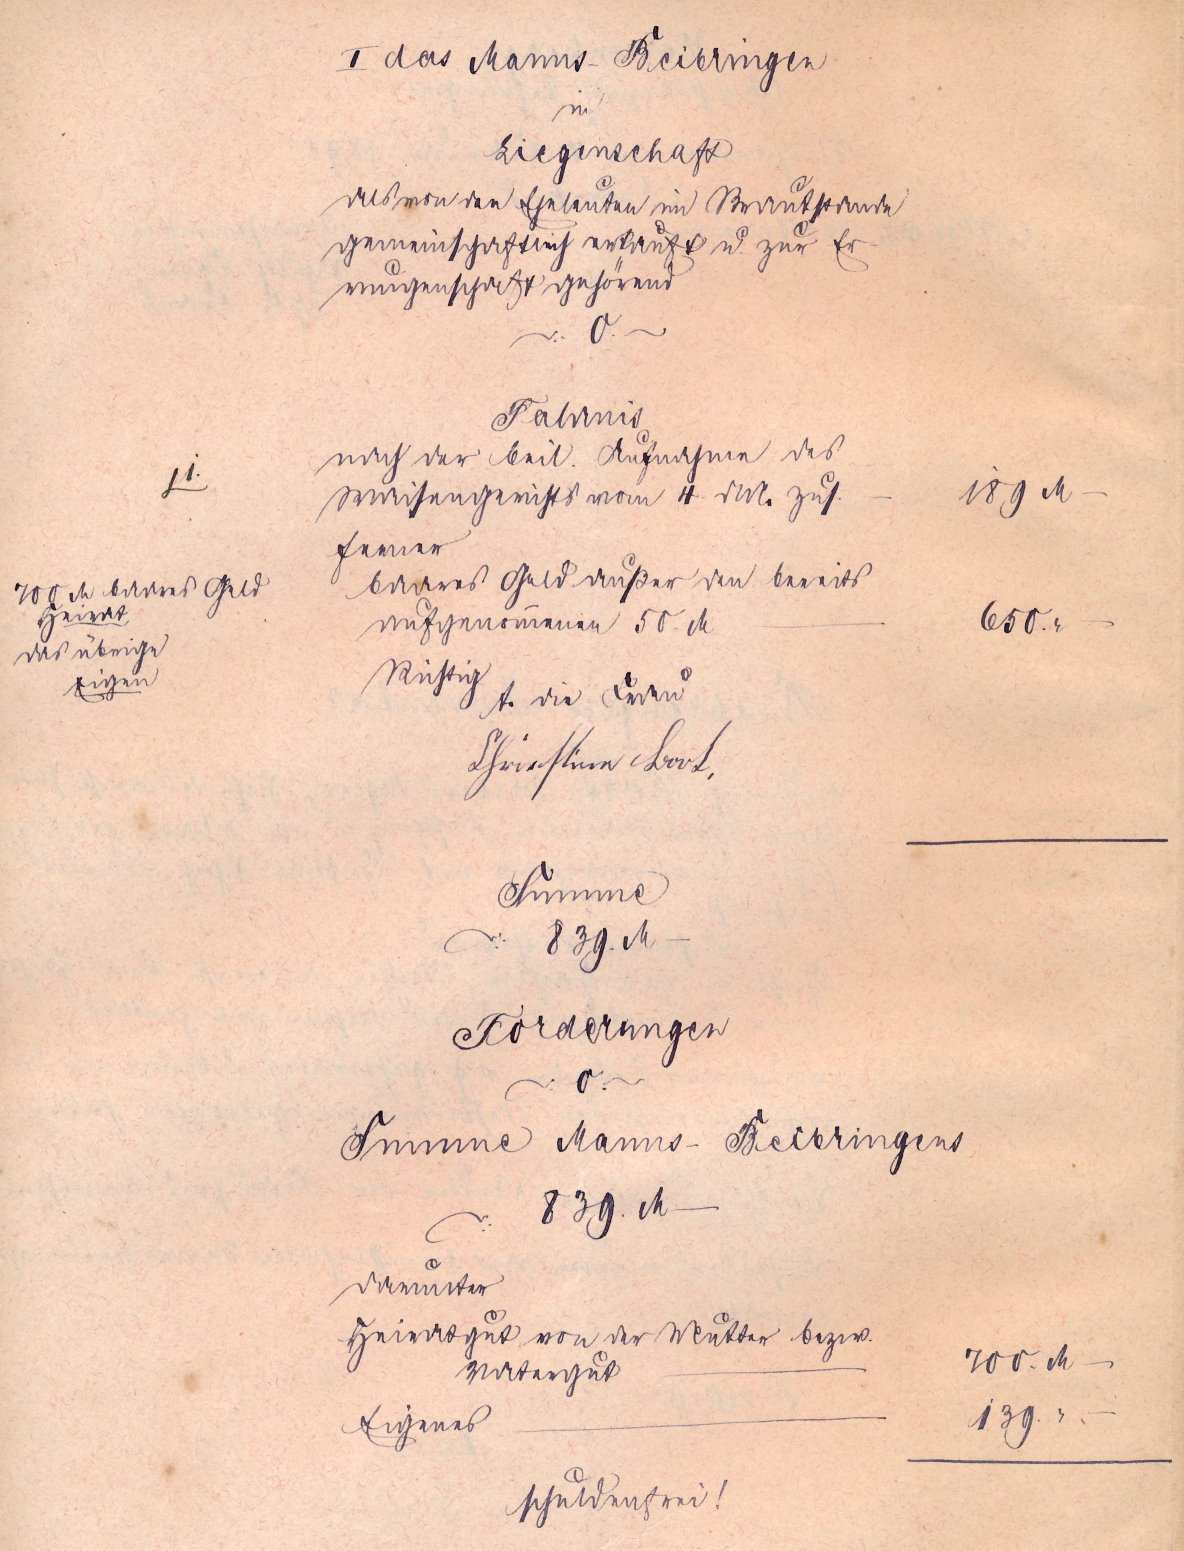 I das Manns-Beibringen
in
Liegenschaft
als von den Eheleuten im Brautstande
gemeinschaftlich erkauft u. zur Er-
rungenschaft gehörend
~: 0. ~
Fahrnis
nach der beil. Aufnahme des
Waisengerichts vom 4. d. M. zus. — 189 M —
ferner
baares Geld außer den bereits
aufgenommenen 50. M — 650. " —
Richtig
t. die Frau
Christine
1.
700 M baares Geld
Heirat
das übrige
Eigen
Summe
~: 839. M —
Forderungen
~: 0. ~
Summe Manns-Beibringens
~: 839. M —
darunter
Heiratgut von der Mutter bezw.
Vatergut — 700. M —
Eigenes — 139. " . —
schuldenfrei!